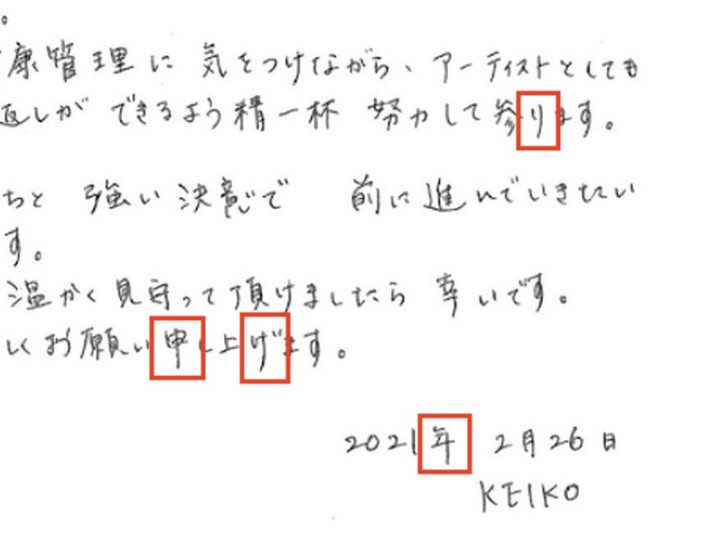 。
康管理に 気をつけながら、アーティストとしても
返しが できるよう精一杯 努力して参ります。
ちと 強い決意で 前に進んでいきたい
す。
温かく見守って頂けましたら 幸いです。
しくお願い申し上げます。
2021年 2月26日
KEIKO